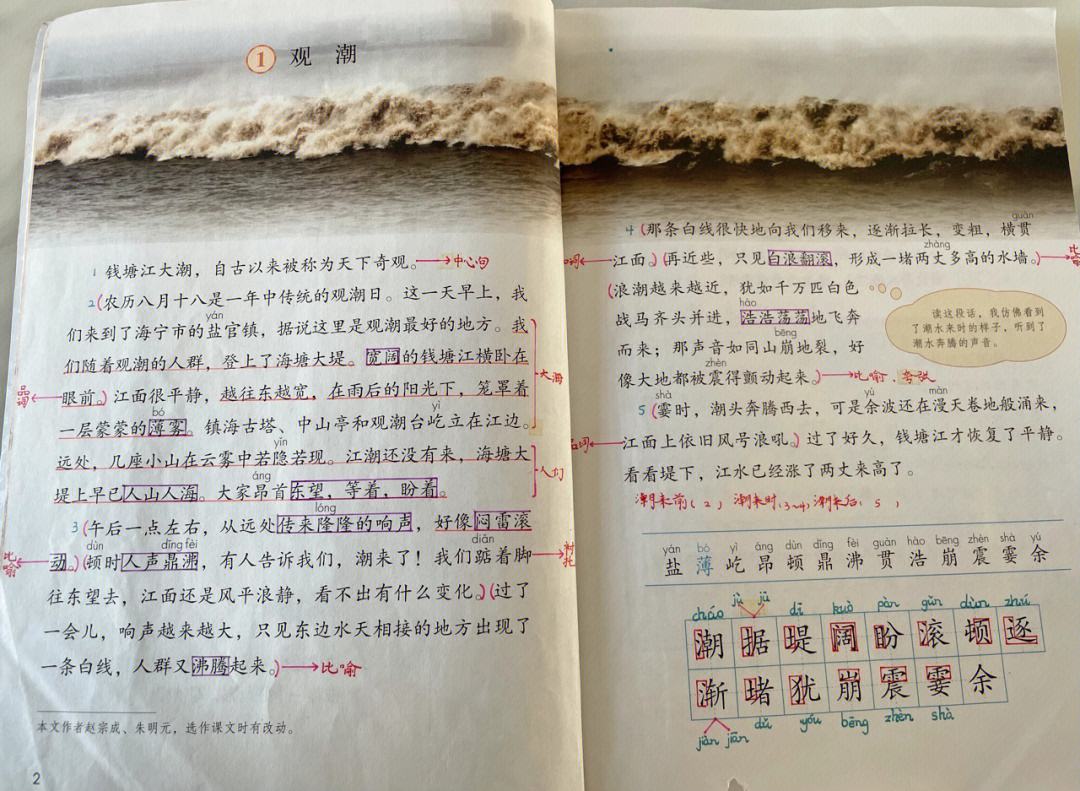 1 观 潮
1 钱塘江大潮，自古以来被称为天下奇观。→中心句
2(农历八月十八是一年中传统的观潮日。这一天早上，我
yán
们来到了海宁市的盐官镇，据说这里是观潮最好的地方。我
们随着观潮的人群，登上了海塘大堤。宽阔的钱塘江横卧在
大海
眼前。)江面很平静，越往东越宽，在雨后的阳光下，笼罩着
bó yì
一层蒙蒙的薄雾。镇海古塔、中山亭和观潮台屹立在江边。
yǐn
远处，几座小山在云雾中若隐若现。江潮还没有来，海塘大
人们
áng
堤上早已人山人海。大家昂首东望，等着，盼着。
lóng
3(午后一点左右，从远处传来隆隆的响声，好像闷雷滚
比喻
dùn dǐng fèi diǎn
动。)(顿时人声鼎沸，有人告诉我们，潮来了！我们踮着脚
衬托
往东望去，江面还是风平浪静，看不出有什么变化。)(过了
一会儿，响声越来越大，只见东边水天相接的地方出现了
一条白线，人群又沸腾起来。)→比喻
本文作者赵宗成、朱明元，选作课文时有改动。
2
guàn
4(那条白线很快地向我们移来，逐渐拉长，变粗，横贯
zhàng
江面。)(再近些，只见白浪翻滚，形成一堵两丈多高的水墙。)
(浪潮越来越近，犹如千万匹白色
hào
战马齐头并进，浩浩荡荡地飞奔
bēng
而来；那声音如同山崩地裂，好
zhèn
像大地都被震得颤动起来。)→比喻、夸张
读这段话，我仿佛看到
了潮水来时的样子，听到了
潮水奔腾的声音。
shà yú màn
5(霎时，潮头奔腾西去，可是余波还在漫天卷地般涌来，
江面上依旧风号浪吼。)过了好久，钱塘江才恢复了平静。
看看堤下，江水已经涨了两丈来高了。
潮来前(2) 潮来时(3~4) 潮来后(5)
yán bó yì áng dùn dǐng fèi guàn hào bēng zhèn shà yú
盐 薄 屹 昂 顿 鼎 沸 贯 浩 崩 震 霎 余
cháo jù jū dī kuò pàn gǔn dùn zhú
潮 据 堤 阔 盼 滚 顿 逐
渐 堵 犹 崩 震 霎 余
jiàn jiān dǔ yóu bēng zhèn shà